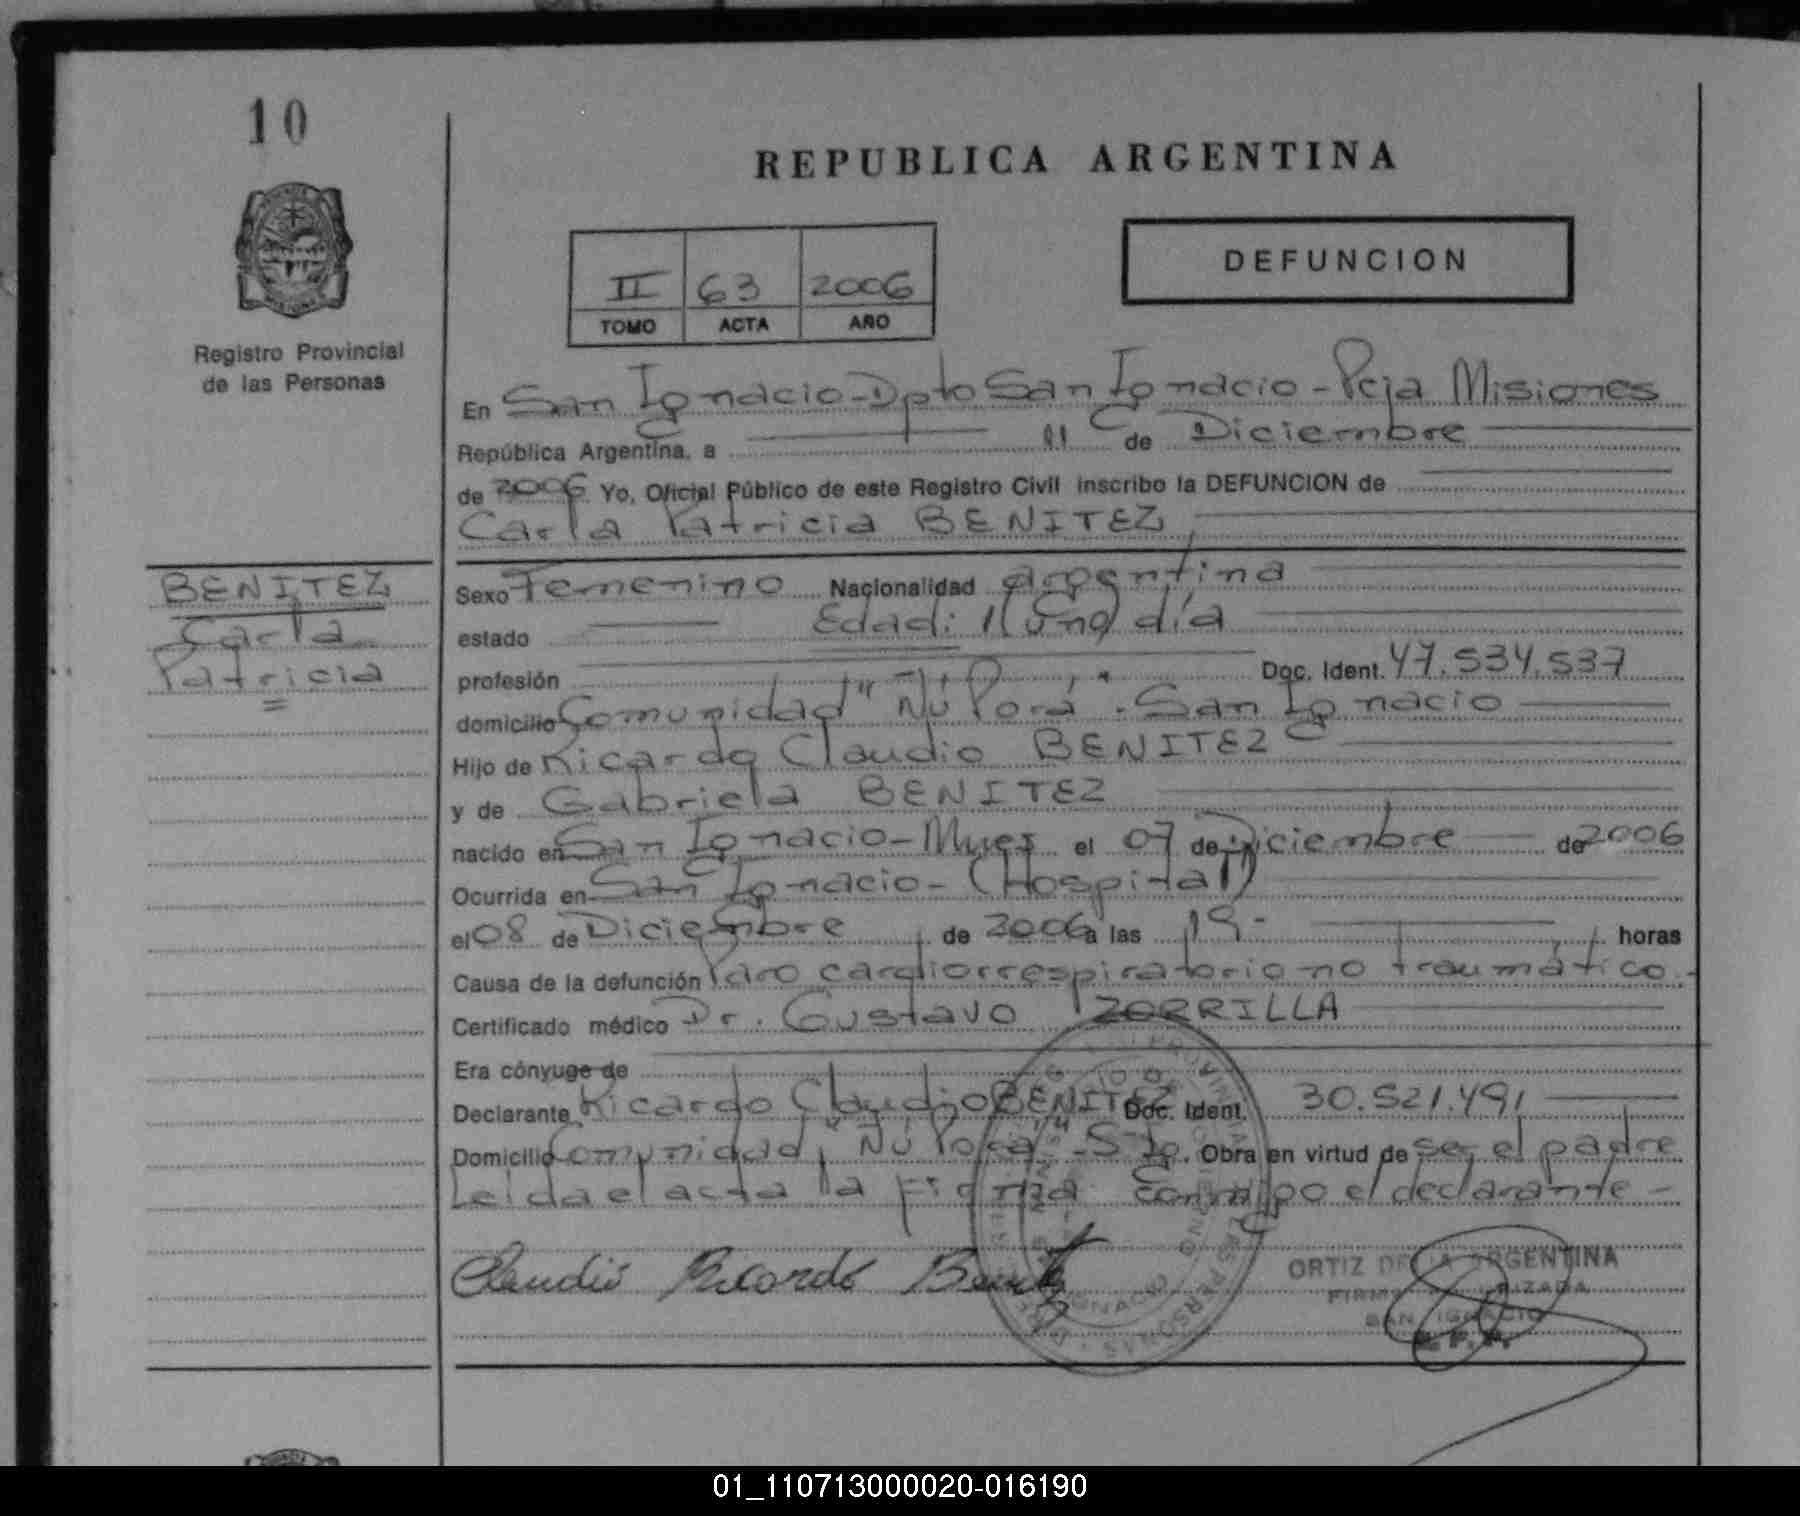 10
REPUBLICA ARGENTINA
II 63 2006
TOMO ACTA AÑO
DEFUNCION
Registro Provincial
de las Personas
BENITEZ
Carla
Patricia
En San Ignacio-Dpto San Ignacio-Pcja Misiones
República Argentina, a 11 de Diciembre
de 2006 Yo, Oficial Público de este Registro Civil inscribo la DEFUNCION de
Carla Patricia BENITEZ
Sexo Femenino Nacionalidad argentina
estado Edad: 1(uno) día
profesión Doc. Ident. 47.534.537
domicilio Comunidad "Ñú Porá". San Ignacio
Hijo de Ricardo Claudio BENITEZ
y de Gabriela BENITEZ
nacido en San Ignacio-Mnes el 07 de Diciembre de 2006
Ocurrida en San Ignacio-(Hospital)
el 08 de Diciembre de 2006 a las 19- horas
Causa de la defunción Paro cardiorrespiratorio no traumático.-
Certificado médico Dr. Gustavo ZORRILLA
Era cónyuge de
Declarante Ricardo Claudio BENITEZ Doc. Ident. 30.521.491
Domicilio Comunidad "Ñú Porá"-S Ig. Obra en virtud de ser el padre
Leida el acta la Firma conmigo el declarante-
Claudio Ricardo Benitez
ORTIZ DELIA ARGENTINA
SAN IGNACIO
01_110713000020-016190